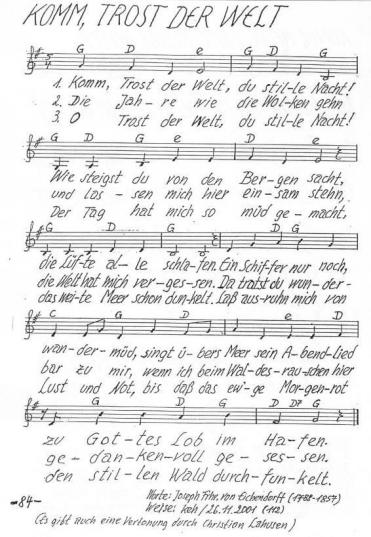 KOMM, TROST DER WELT
G D e G D G
1. Komm, Trost der Welt, du stil-le Nacht!
2. Die Jah-re wie die Wolken gehn
3. O Trost der Welt, du stil-le Nacht!
G D G e D e
Wie steigst du von den Ber-gen sacht,
und las-sen mich hier ein-sam stehn,
Der Tag hat mich so müd ge-macht,
G D G C G
die Lüf-te al-le schla-fen. Ein Schif-fer nur noch,
die Welt hat mich ver-ges-sen. Da tratst du wun-der-
das wei-te Meer schon dun-kelt. Laß aus-ruhn mich von
C G D G
wan-der-müd, singt ü-bers Meer sein A-bend-lied
bar zu mir, wenn ich beim Wal-des-rau-schen hier
Lust und Not, bis daß das ew'-ge Mor-gen-rot
e G D D7 G
zu Got-tes Lob im Ha-fen.
ge-dan-ken-voll ge-ses-sen.
den stil-len Wald durch-fun-kelt.
-84-
Worte: Joseph Frhr. von Eichendorff (1788-1857)
Weise: keh/26.11.2001 (112)
(Es gibt auch eine Vertonung durch Christian Lahusen)